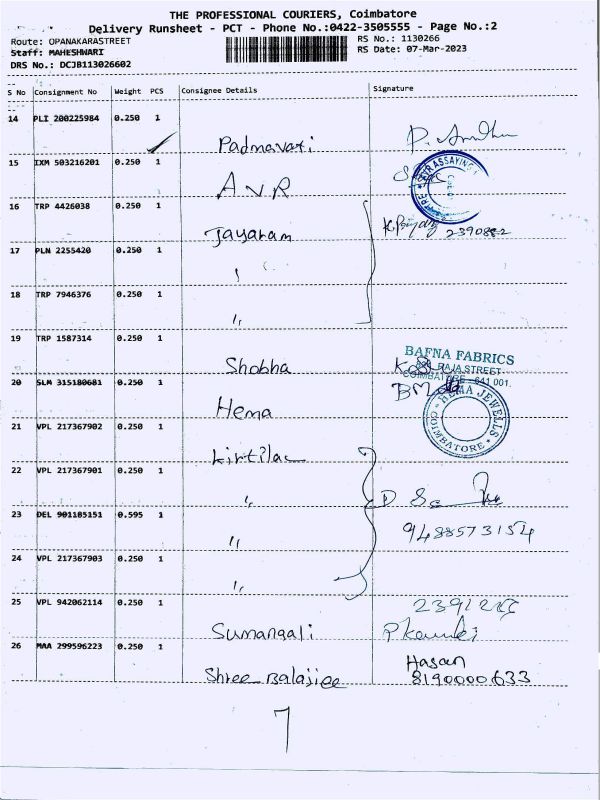 THE PROFESSIONAL COURIERS, Coimbatore
Delivery Runsheet - PCT - Phone No.:0422-3505555 - Page No.:2
Route: OPANAKARASTREET RS No.: 1130266
Staff: MAHESHWARI RS Date: 07-Mar-2023
DRS No.: DCJB113026602
S No Consignment No Weight PCS Consignee Details Signature
14 PLI 200225984 0.250 1
Padmavati
15 IXM 503216201 0.250 1
A V R
16 TRP 4426038 0.250 1
Jayaram 2390882
17 PLN 2255420 0.250 1
18 TRP 7946376 0.250 1
"
19 TRP 1587314 0.250 1
Shobha
BAFNA FABRICS
RAJA STREET
COIMBATORE - 641 001.
20 SLM 315180681 0.250 1
Hema
HEMA JEWELLS
COIMBATORE
21 VPL 217367902 0.250 1
Kirtilal
22 VPL 217367901 0.250 1
"
23 DEL 901185151 0.595 1
" 9488573154
24 VPL 217367903 0.250 1
"
25 VPL 942062114 0.250 1
Sumangali
26 MAA 299596223 0.250 1
Shree Balajiee Hasan
8190000633
7